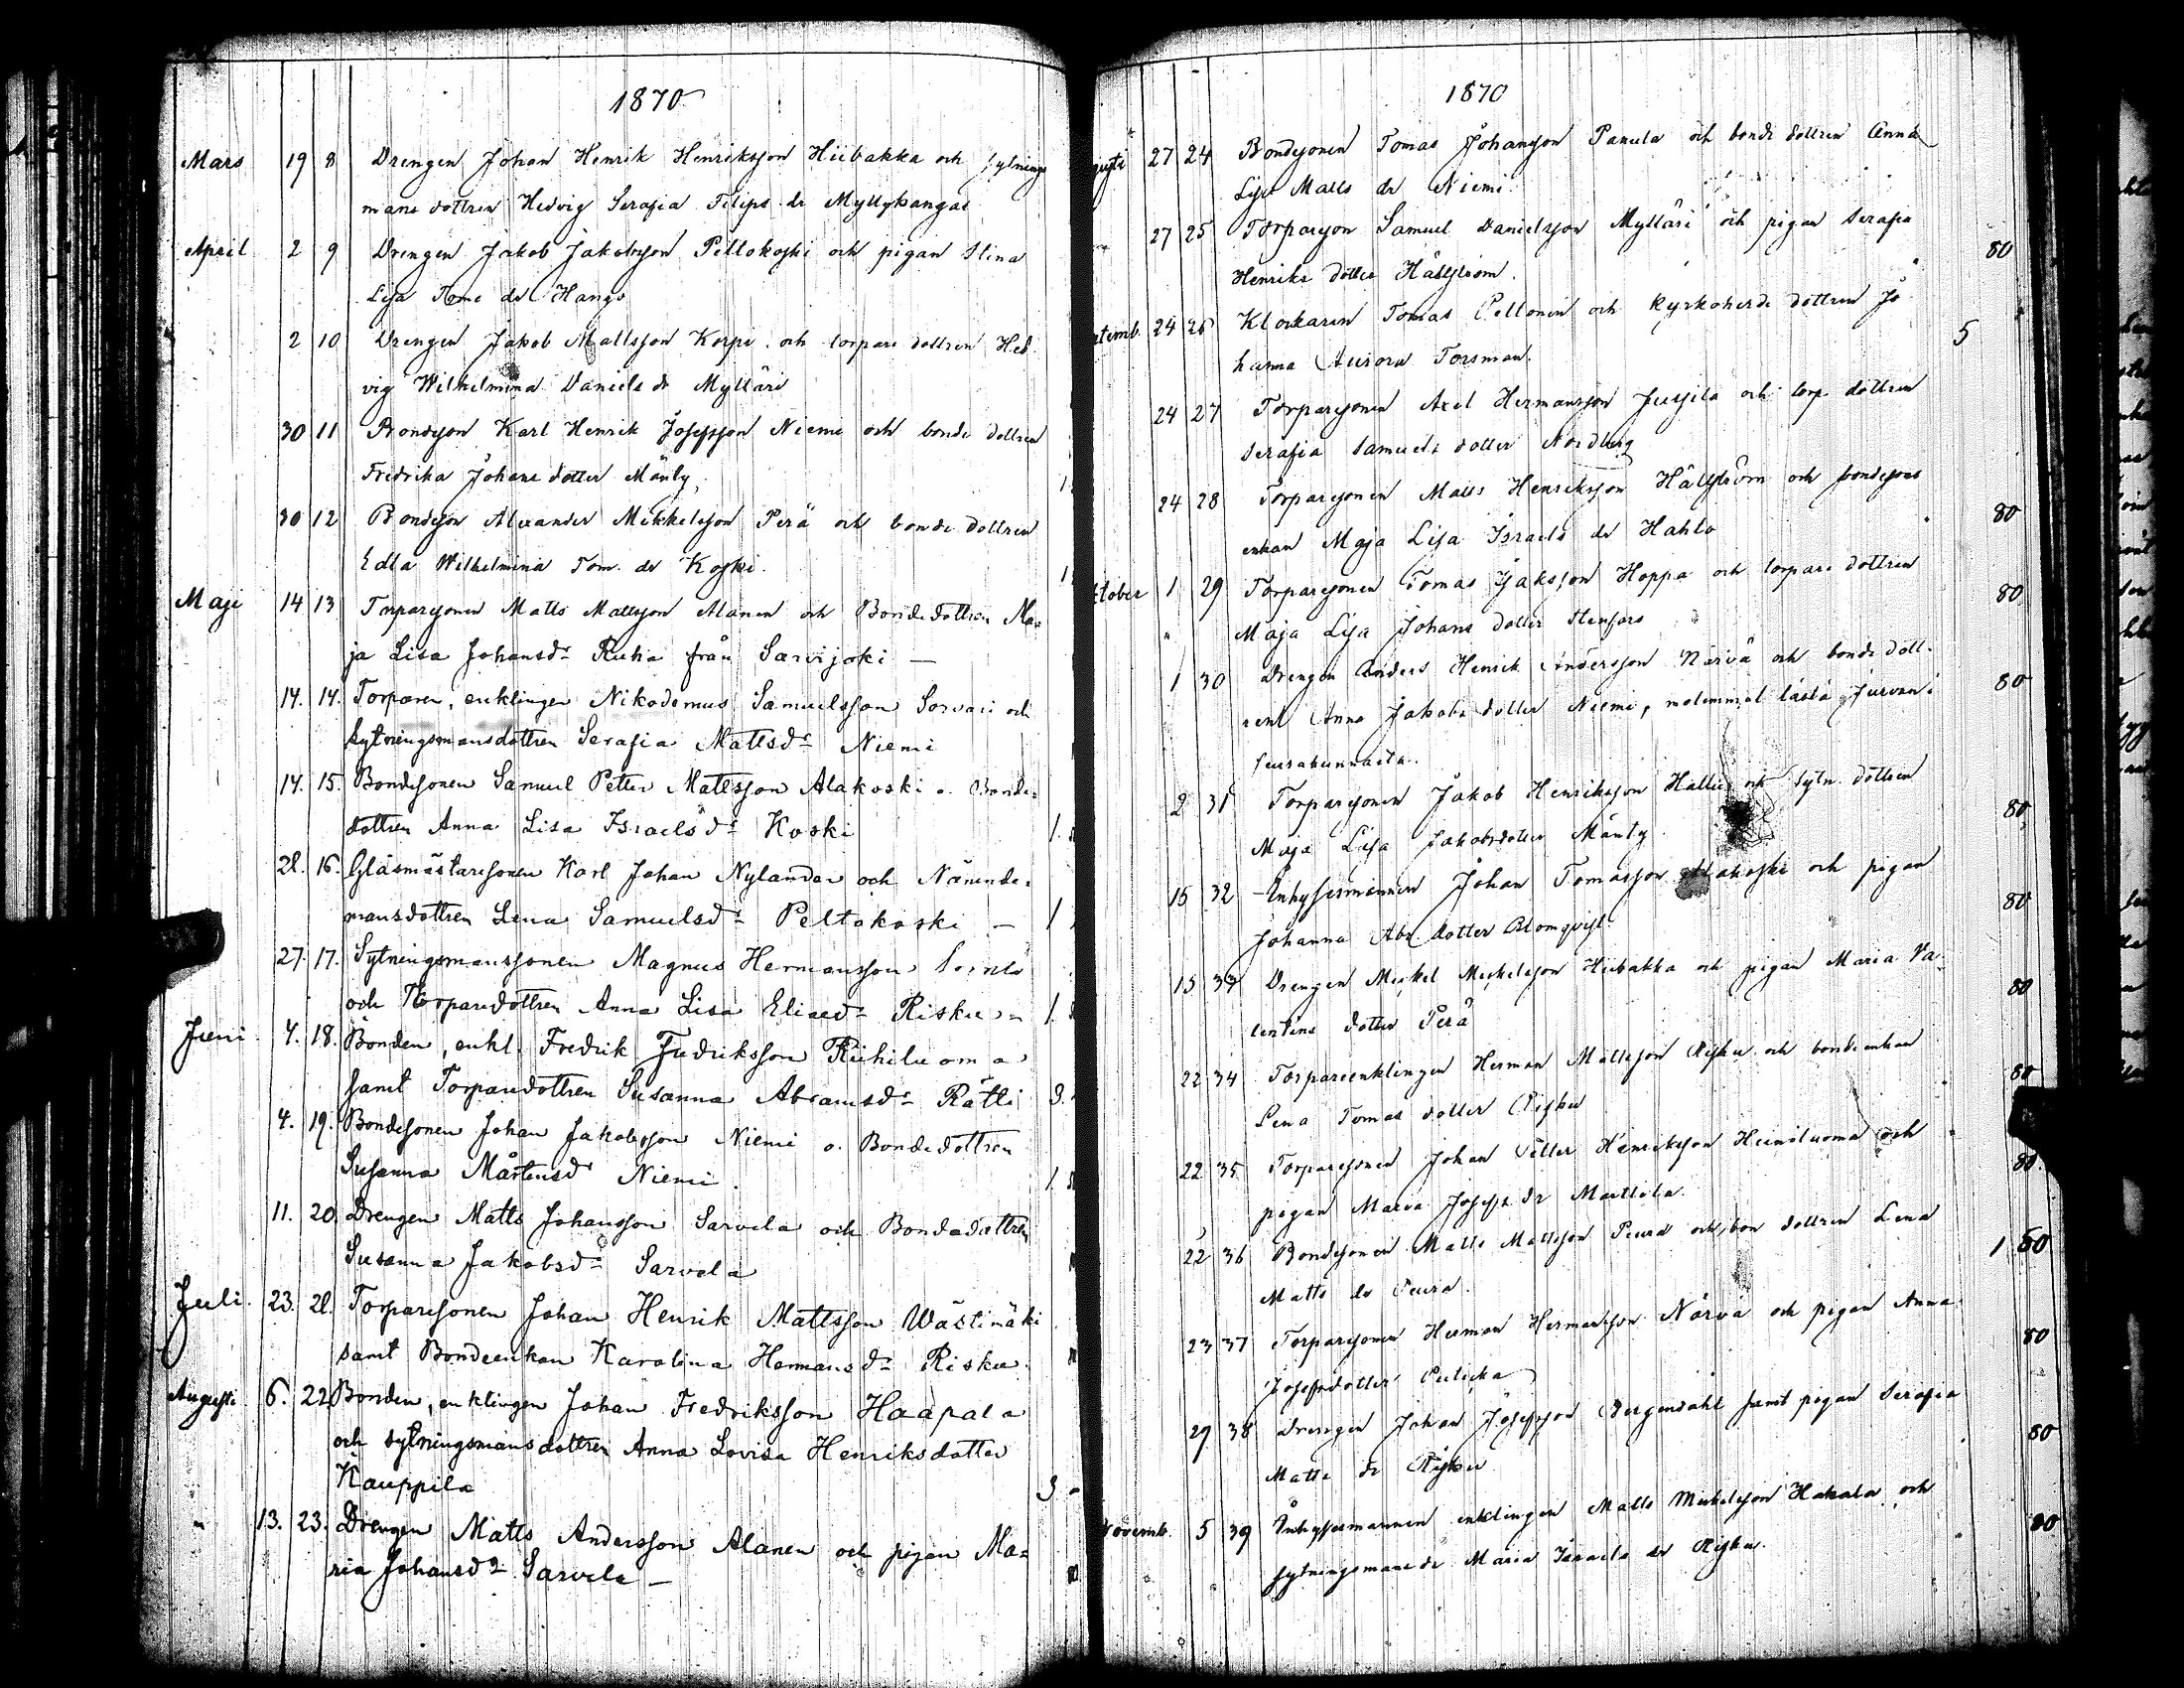 1870
Mars 19 8 Drengen Johan Henrik Henriksson Hiibakka och sytnings
mans dottren Hedvig Serafia Filips dr Myllykangas
April 2 9 Drengen Jakob Jakobsson Peltokoski och pigan Stina
Lisa Tome dr Hangs
2 10 Drengen Jakob Mattsson Korpi och torpare dottren Hed
vig Wilhelmina Daniels dr Mylläri
30 11 Bondson Karl Henrik Josefsson Niemi och bonde dottren
Fredrika Johans dotter Mänty
30 12 Bondeson Alexander Mikkelsson Perä och bonde dottren
Edla Wilhelmina Tom. dr Koski.
Maji 14 13 Torparesonen Matts Mattsson Alanen och Bondedottren Ma=
ja Lisa Johansdr Ruha från Sarvijoki —
14. 14. Torparen, enklingen Nikodemus Samuelsson Sorvari och
sytningsmansdottren Serafia Mattsdr Niemi
14. 15. Bondesonen Samuel Petter Mattsson Alakoski o. Bonde=
dottren Anna Lisa Israelsdr Koski 1.
21. 16. Glasmästaresonen Karl Johan Nylander och Nämnde=
mansdottren Lena Samuelsdr Peltokoski — 1
27. 17. Sytningsmanssonen Magnus Hermansson
och Torparedottren Anna Lisa Eliaedr Risku 1.
Juni. 4. 18. Bonden, enkl. Fredrik Fredriksson Riihiluoma
samt Torparedottren Susanna Abramsdr Rätti 3.
4. 19. Bondesonen Johan Jakobsson Niemi o. Bondedottren
Susanna Mårtensdr Niemi. 1.
11. 20. Drengen Matts Johansson Sarvela och Bondedottren
Susanna Jakobsdr Sarvela
Juli. 23. 21. Torparesonen Johan Henrik Mattsson Wästimäki
samt Bondeenkan Karolina Hermansdr Risku.
Augusti 6. 22 Bonden, enklingen Johan Fredriksson Haapala
och sytningsmans dottren Anna Lovisa Henriksdotter
Kauppila 3 -
" 13. 23. Drengen Matts Andersson Alanen och pigan Ma=
ria Johansdr Sarvela —
1870
gusti 27 24 Bondesonen Tomas Johansson Panula och bonde dottren Anna
Lisa Matts dr Niemi.
27 25 Torpareson Samuel Danielsson Mylläri och pigan Serafia
Henriks dotter Hällström. 80
temb. 24 26 Klockaren Tomas Peltonen och kyrkoherde dottren Jo
hanna Aurora Forsman. 5
24 27 Torparesonen Axel Hermansson Jussila och torp dottren
Serafia Samuels dotter Nordberg
24 28 Torparesonen Matts Henriksson Hällström och bondesons
enkan Maja Lisa Israels dr Hahto 80
ktober 1 29 Torparesonen Tomas Isaksson Hoppa och torpare dottren
Maja Lisa Johans dotter Stenfors 80
1 30 Drengen Anders Henrik Andersson Närvä och bonde dott
ren Anna Jakobs dotter Niemi, molemmat tästä Jurvan 80
seurakunnasta.
2 31 Torparesonen Jakob Henriksson Hallu och sytn. dottren
Maja Lisa Jakobsdotter Mänty 80
15 32 Inhysesmannen Johan Tomasson Alakoski och pigan
Johanna Abr. dotter Blomqvist. 80
15 33 Drengen Mickel Mickelsson Hiibakka och pigan Maria Va
lentins dotter Perä 80
22 34 Torpareenklingen Herman Mattsson Risku och bondeenkan
Lena Tomas dotter Risku 80
22 35 Torparesonen Johan Petter Henriksson Heiniluoma och
pigan Maria Josefs dr Marttila. 80
22 36 Bondesonen Matts Mattsson Peura och bon dottren Lena
Matts dr Peura. 1 60
23 37 Torparesonen Herman Hermansson Närvä och pigan Anna
Josefsdotter Pulicka 80
29 38 Drengen Johan Josefsson Bergendahl samt pigan Serafia
Matts dr Risku 80
Novemb. 5 39 Inhysesmannen enklingen Matts Mickelsson Hakala och
sytningsmans dr Maria Israels dr Risku. 80